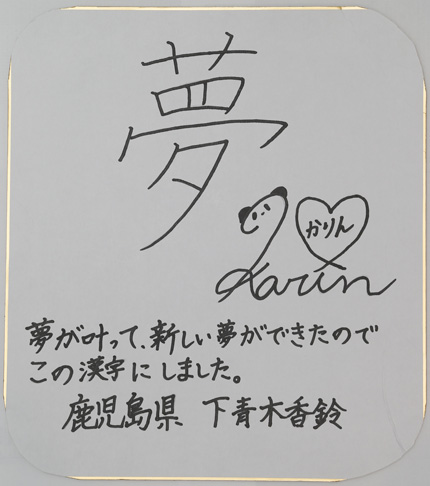 夢
かりん
Karin
夢が叶って、新しい夢ができたので
この漢字にしました。
鹿児島県 下青木香鈴